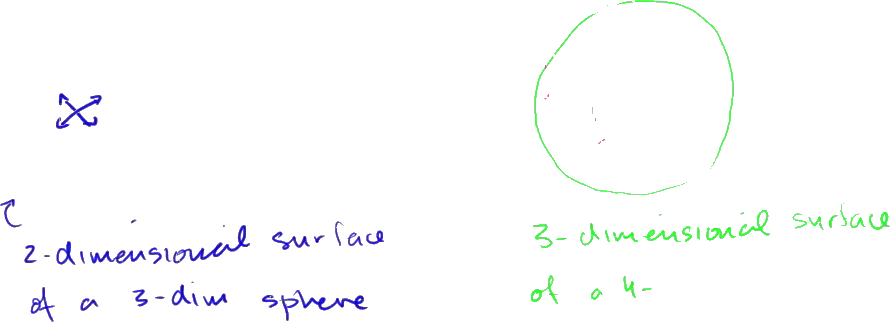 2-dimensional surface
of a 3-dim sphere
3-dimensional surface
of a 4-